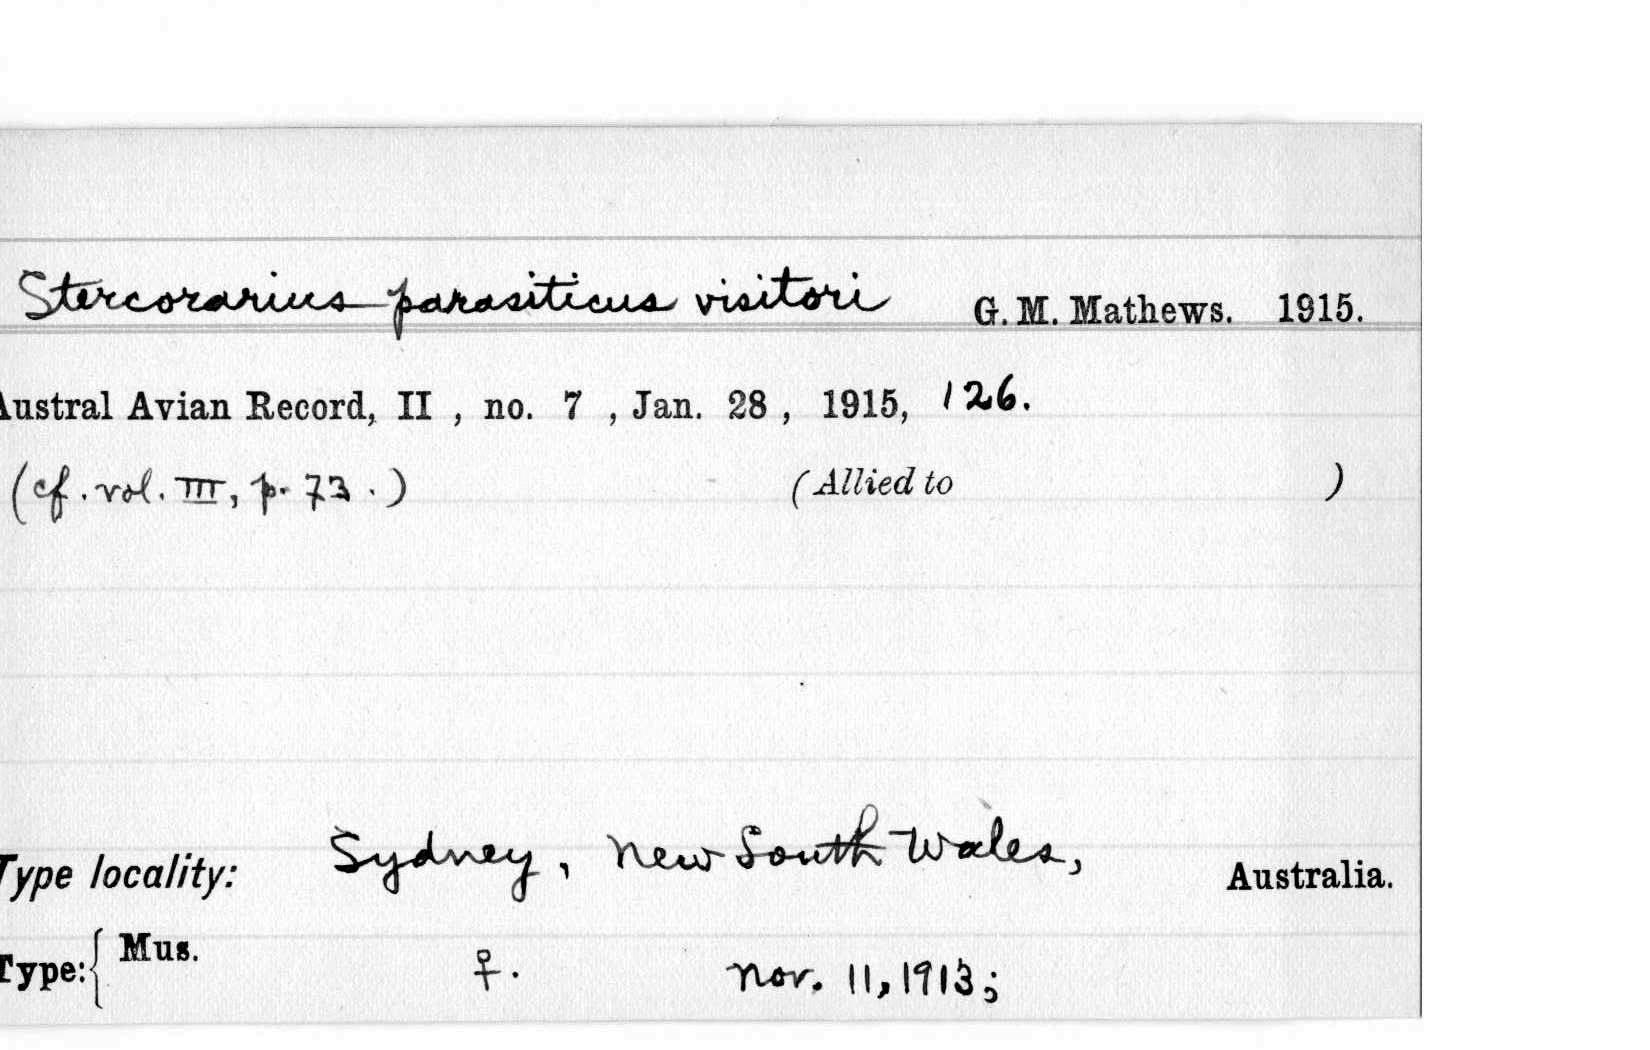 Stercorarius parasiticus visitori G. M. Mathews. 1915.
Austral Avian Record, II , no. 7 , Jan. 28 , 1915, 126.
(cf. vol. III, p. 73.) (Allied to )
Type locality: Sydney, New South Wales, Australia.
Type: { Mus. ♀. Nov. 11, 1913;